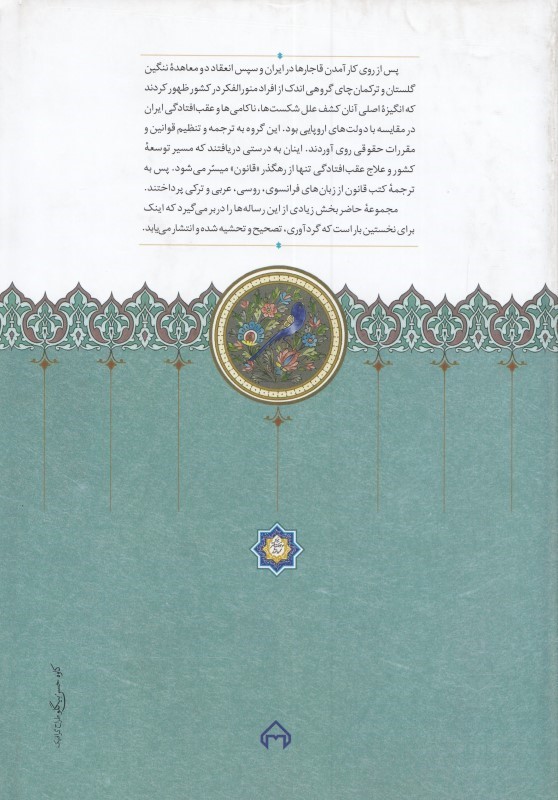 پس از روی کار آمدن قاجارها در ایران و سپس انعقاد دو معاهدهٔ ننگین
گلستان و ترکمان‌چای گروهی اندک از افراد منورالفکر در کشور ظهور کردند
که انگیزهٔ اصلی آنان کشف علل شکست‌ها، ناکامی‌ها و عقب‌افتادگی ایران
در مقایسه با دولت‌های اروپایی بود. این گروه به ترجمه و تنظیم قوانین و
مقررات حقوقی روی آوردند. اینان به درستی دریافتند که مسیر توسعهٔ
کشور و علاج عقب‌افتادگی تنها از رهگذر «قانون» میسّر می‌شود. پس به
ترجمهٔ کتب قانون از زبان‌های فرانسوی، روسی، عربی و ترکی پرداختند.
مجموعهٔ حاضر بخش زیادی از این رساله‌ها را در بر می‌گیرد که اینک
برای نخستین بار است که گردآوری، تصحیح و تحشیه شده و انتشار می‌یابد.
کاوه حسن‌بیگلو طراح گرافیک